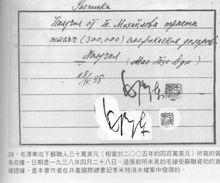 Расписка
Получил от т. Михайлова триста
тысяч (300,000) американских долларов
Получил
(Мао Цзе Дун)
28/IV 38
28. 毛澤東收下蘇聯人三十萬美元（相當於二○○五年的四百萬美元）所寫的簽
名收據，日期是一九三八年四月二十八日。這張前所未見的毛接受蘇聯資助的直
接證據，是本書作者在共產國際總書記季米特洛夫檔案中發現的。